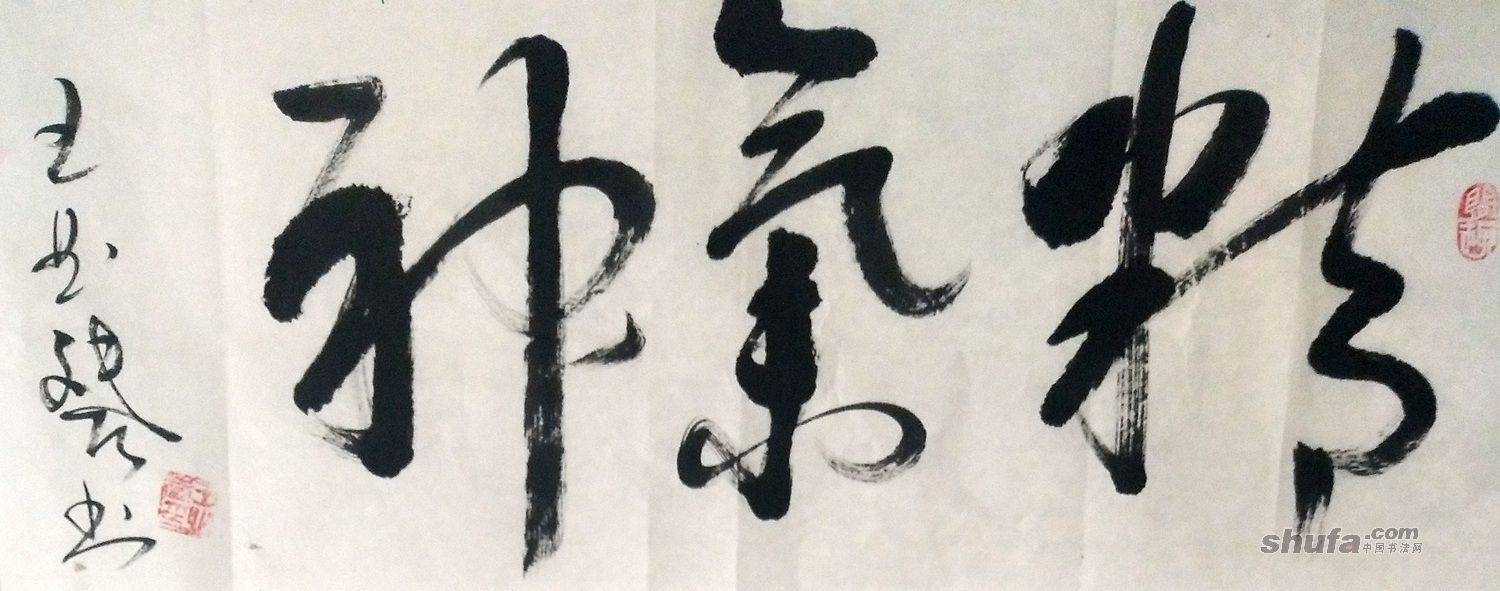 精氣神
王 书
shufa.com
中国书法网